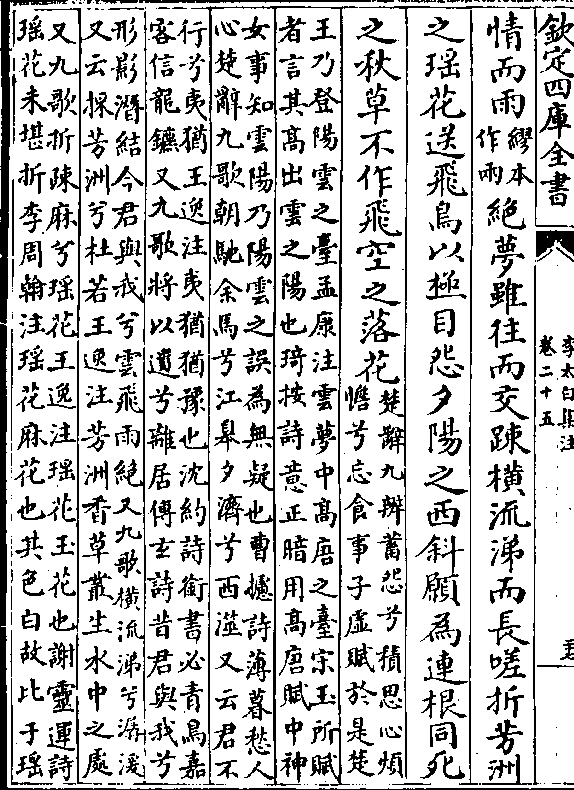 欽定四庫全書
李太白集注
卷二十五
情而雨繆本作兩絕夢雖往而交疎橫流涕而長嗟折芳洲
之瑶花送飛鳥以極目怨夕陽之西斜願為連根同死
之秋草不作飛空之落花楚辭九辨蓄怨兮積思心煩
憺兮忘食事子虛賦於是楚
王乃登陽雲之臺孟康注雲夢中高唐之臺宋玉所賦
者言其高出雲之陽也琦按詩意正暗用高唐賦中神
女事知雲陽乃陽雲之誤為無疑也曹攄詩薄暮愁人
心楚辭九歌朝馳余馬兮江皋夕濟兮西澨又云君不
行兮夷猶王逸注夷猶猶豫也沈約詩銜書必青鳥嘉
客信龍鑣又九歌將以遺兮離居傅玄詩昔君與我兮
形影潛結今君與我兮雲飛雨絕又九歌橫流涕兮潺湲
又云採芳洲兮杜若王逸注芳洲香草叢生水中之處
又九歌折疎麻兮瑶花王逸注瑶花玉花也謝靈運詩
瑶花未堪折李周翰注瑶花麻花也其色白故比于瑶